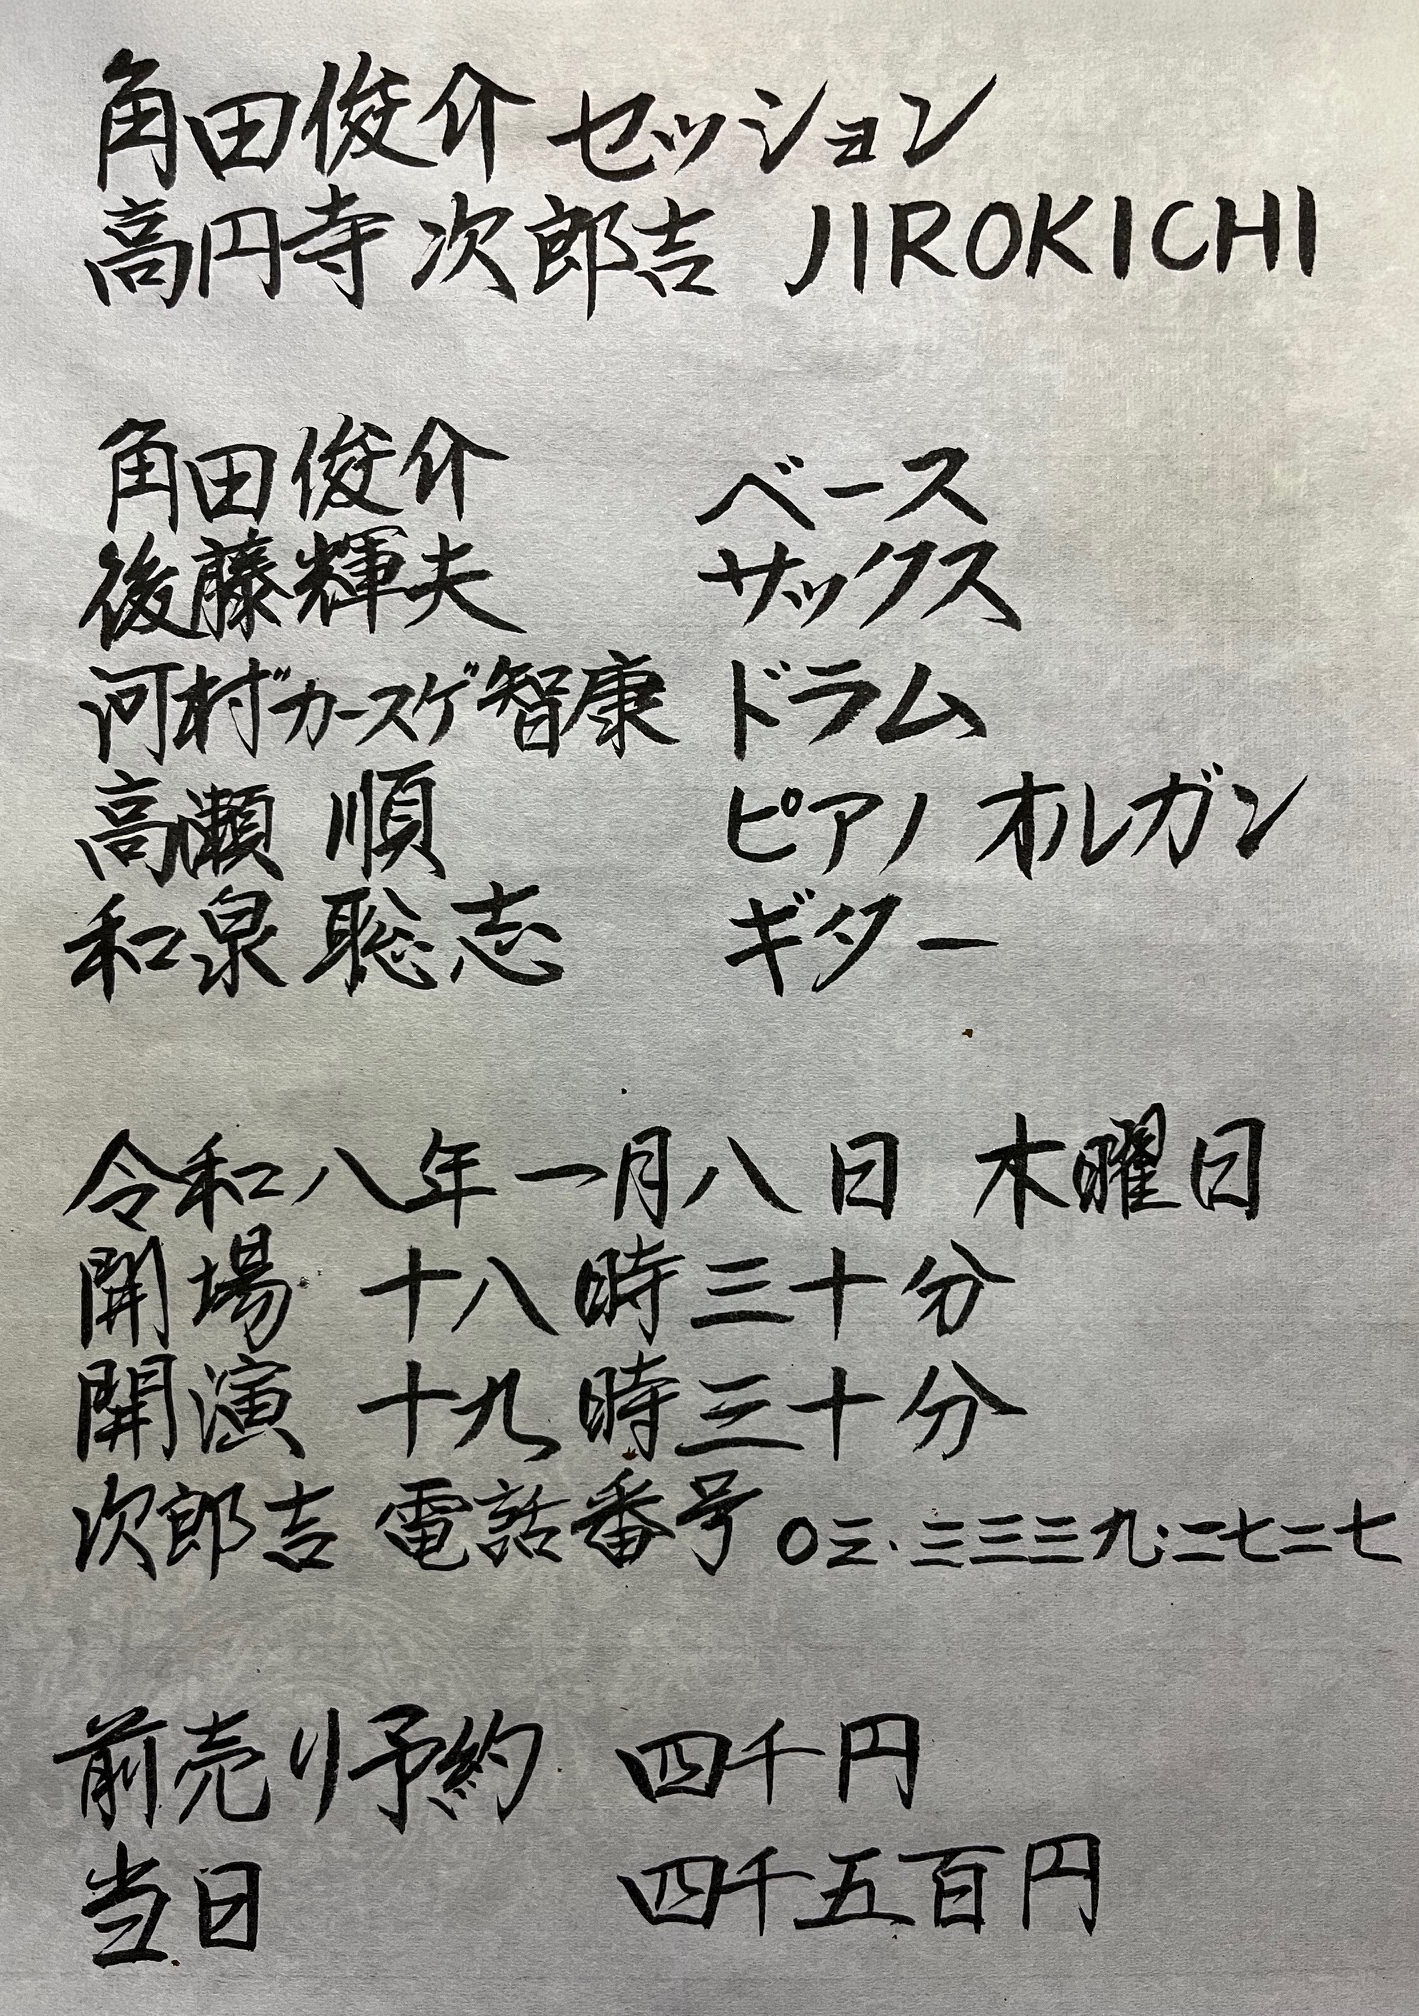 角田俊介 セッション
高円寺 次郎吉 JIROKICHI
角田俊介 ベース
後藤輝夫 サックス
河村"カースケ"智康 ドラム
高瀬 順 ピアノ オルガン
和泉 聡志 ギター
令和八年一月八日 木曜日
開場 十八時三十分
開演 十九時三十分
次郎吉 電話番号 〇三・三三三九・二七二七
前売り予約 四千円
当日 四千五百円